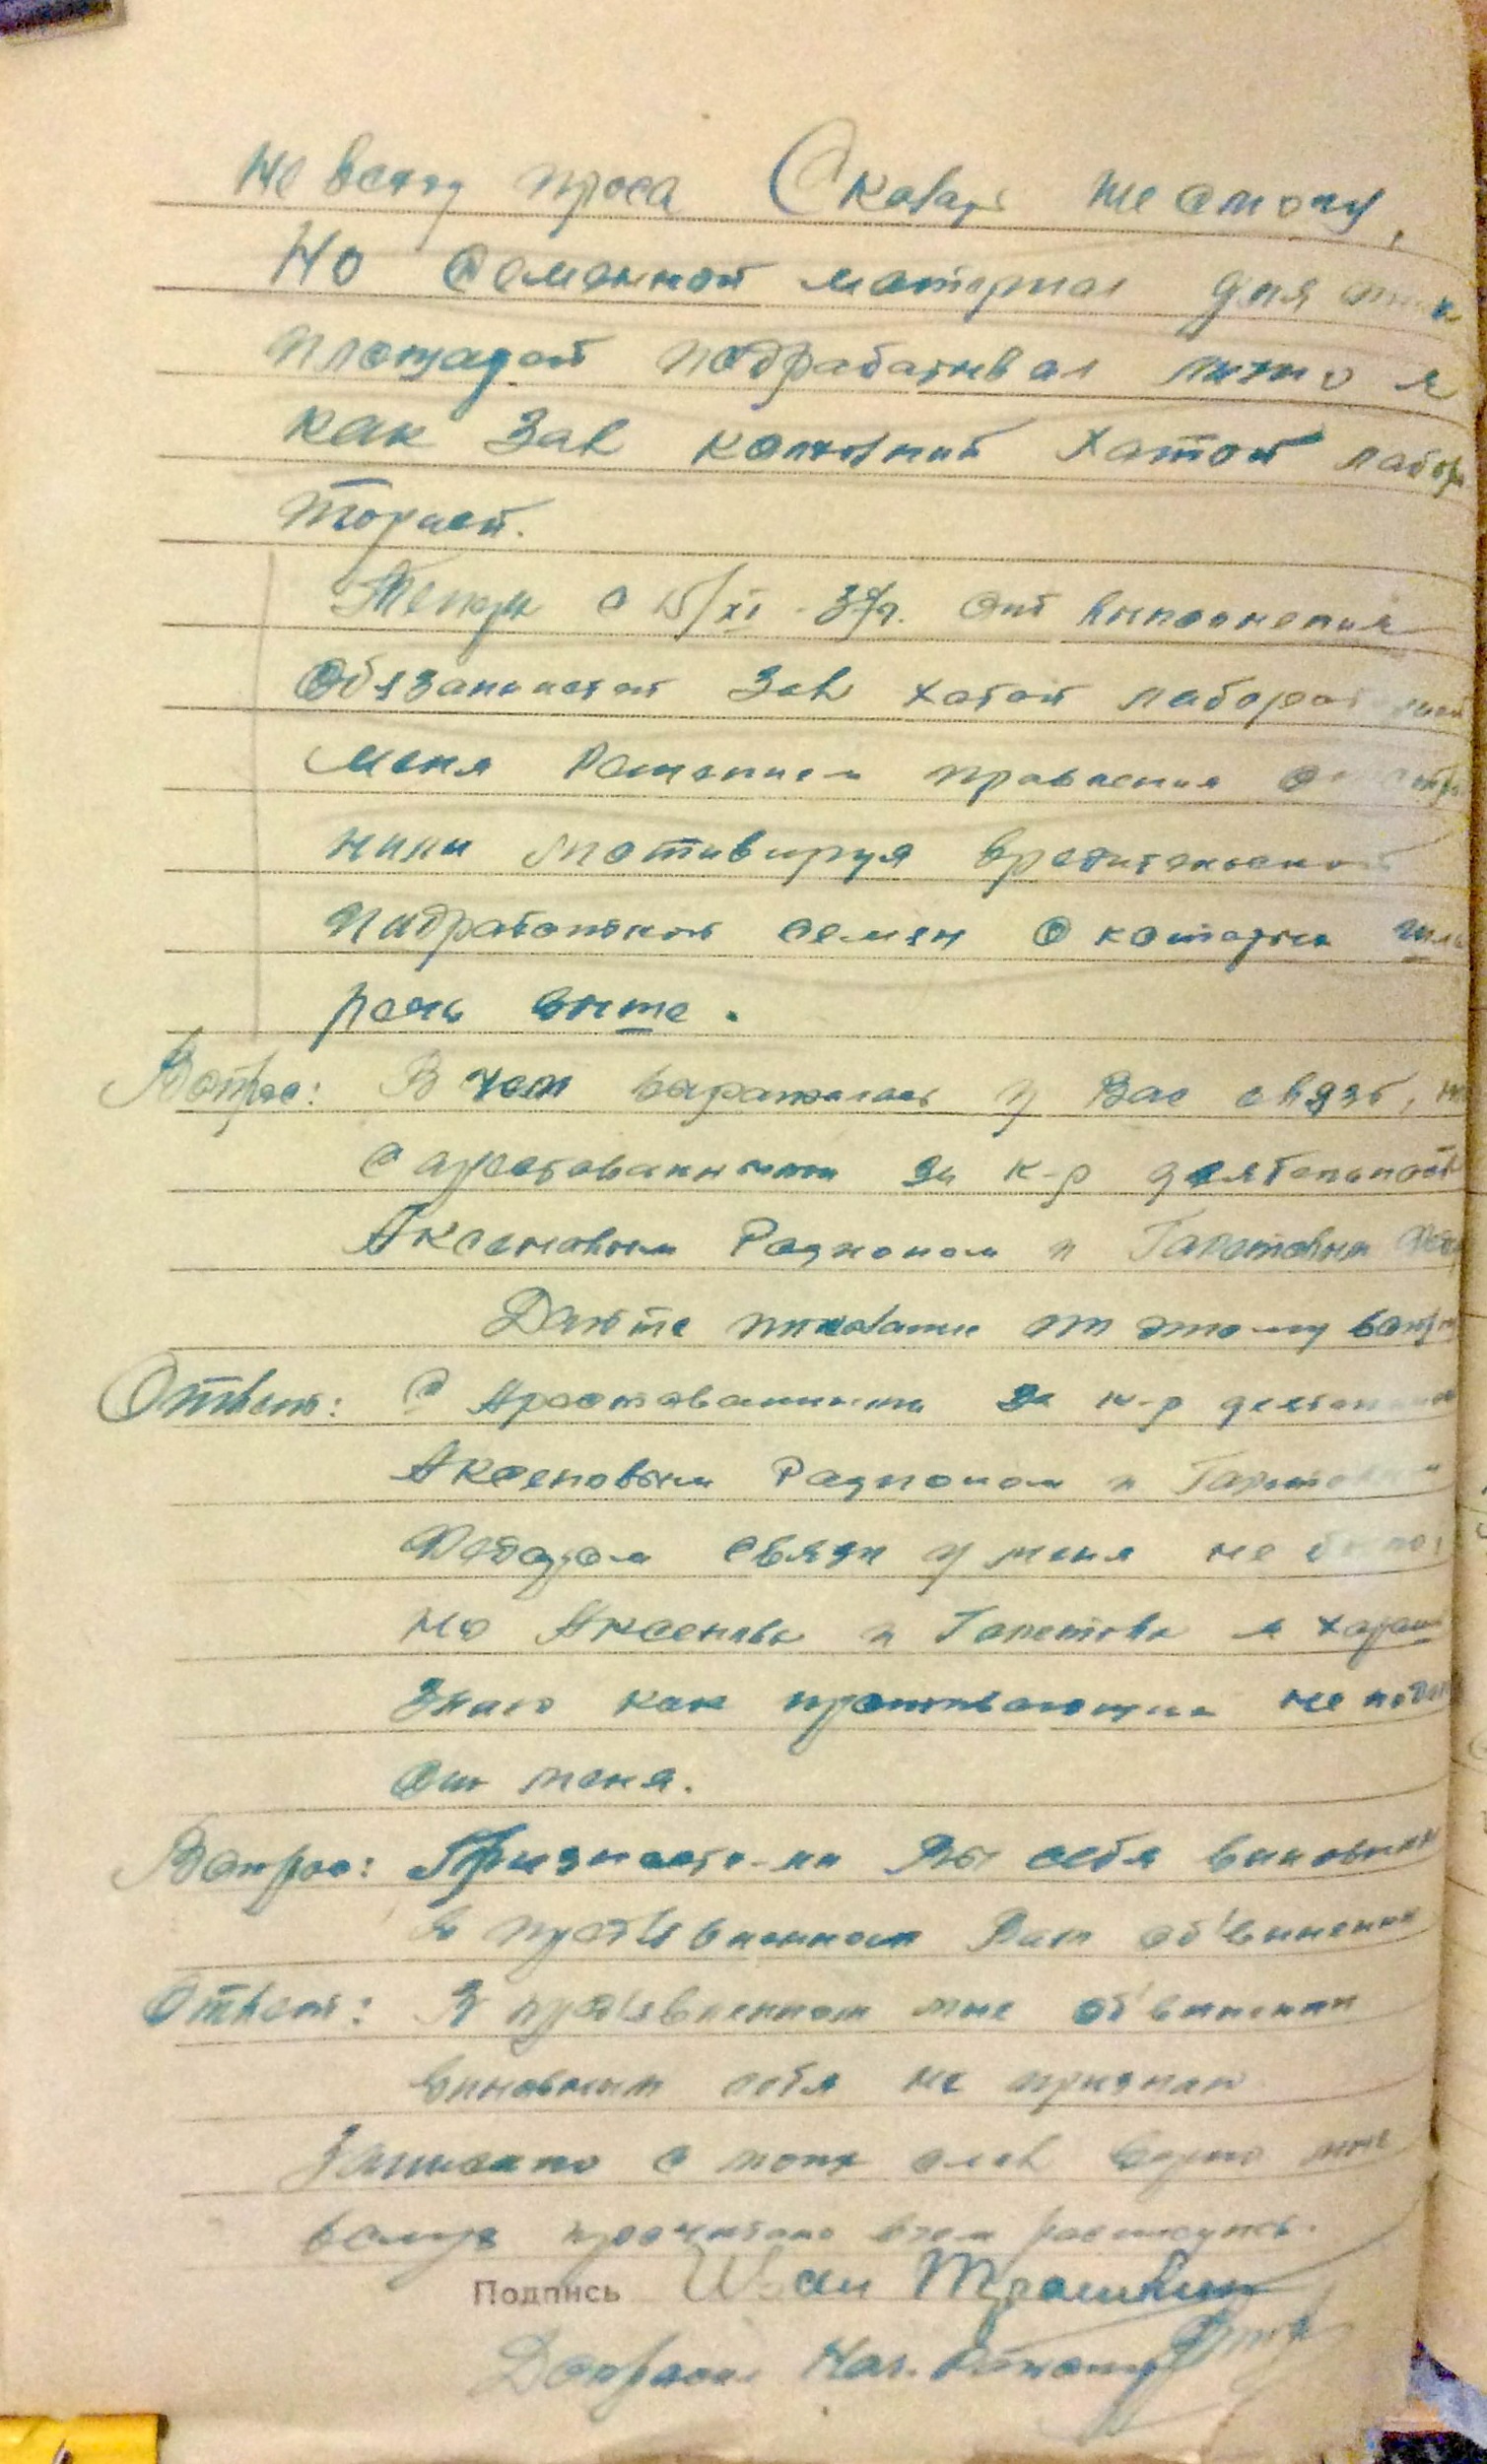 Не всход проса Сказать не смогу,
Но Семенной материал для этих
площадей подрабатывал лично я
как Зав колхозной Хатой лабора
торией.
с 15/XI-37г. от выполнения
Обязанностей Зав хатой лабораторией
меня Решением правления отстра
нили мотивируя вредительской
подработкой семян о которых шла
речь выше.
Вопрос: В чем выражалась у Вас связь,
с арестованными за к-р деятельность
Аксеновым Радионом и
Дайте показание по этому вопросу
Ответ: С Арестованными за к-р деятельность
Аксеновым Радионом и
Федором связи у меня не было,
но Аксенова и я харашо
Знаю как проживающих не подал
от меня.
Вопрос: Признаете-ли Вы себя виновным
в пред'явленном Вам об'винении
Ответ: В пред'явленном мне об'винении
виновным себя не признаю
Записано с моих слов верно мне
вслух прочитано в чем расписуюсь.
Подпись Иван
Допросил Нач.